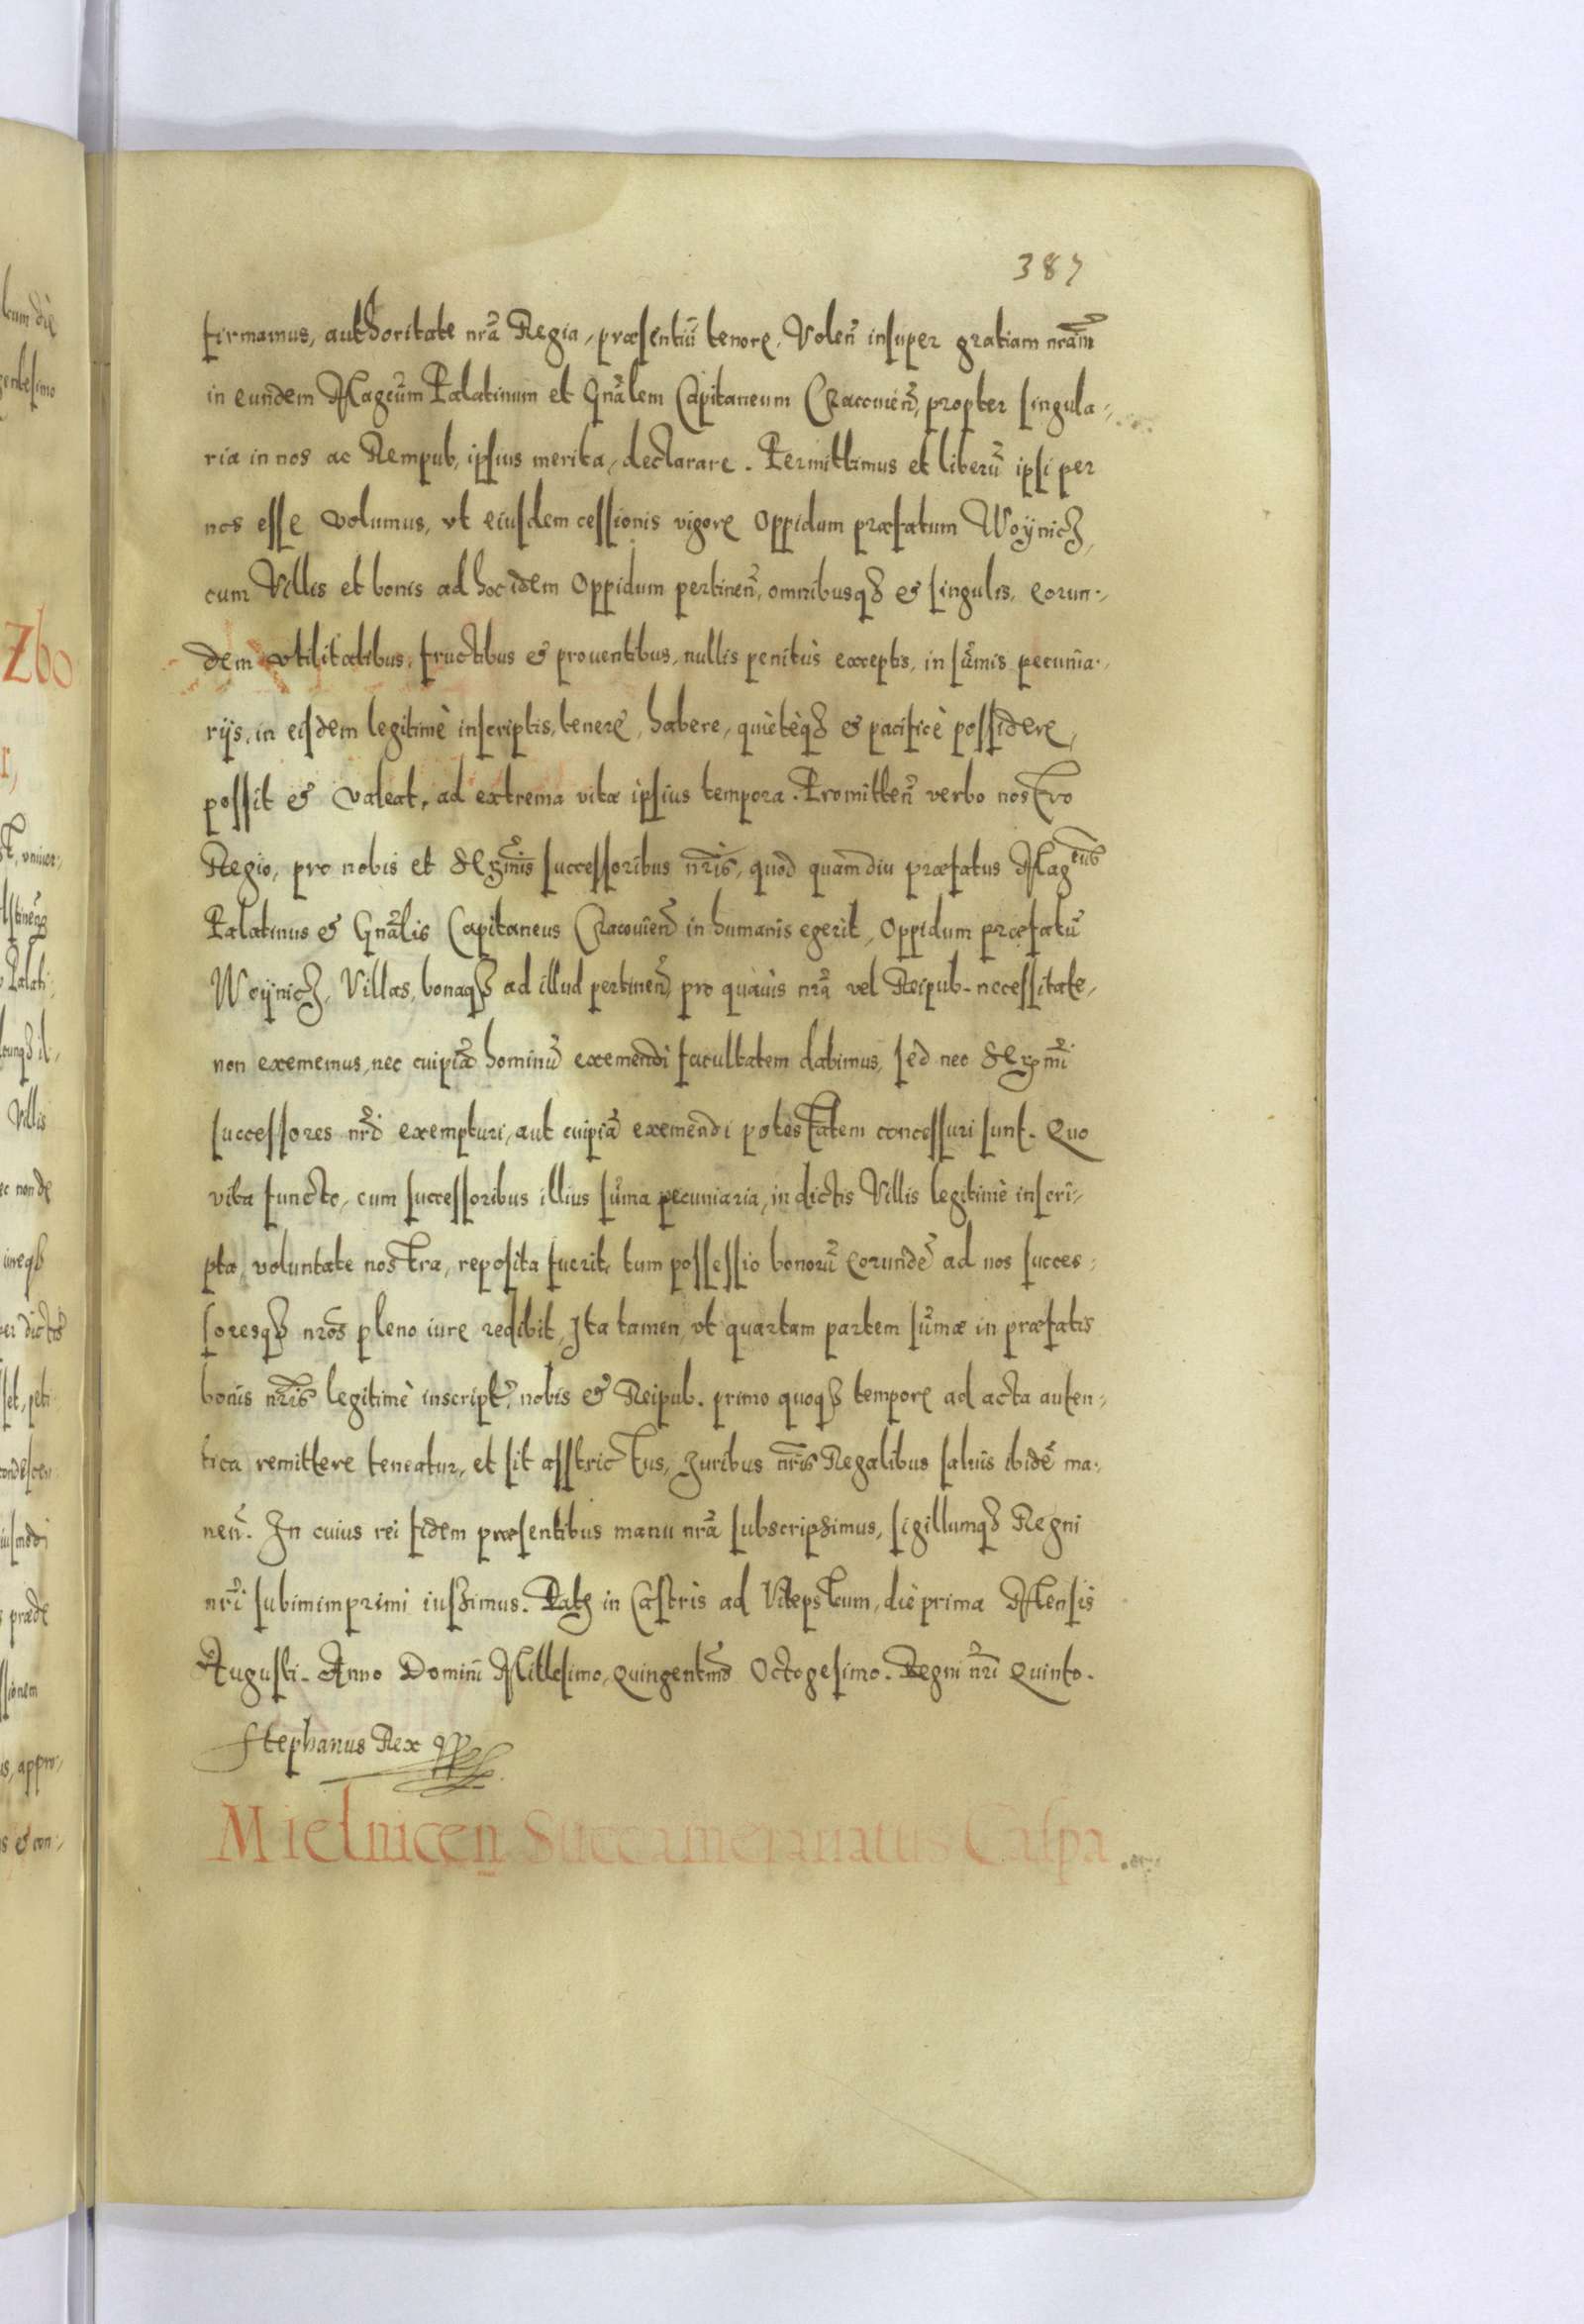 387
firmamus, authoritate nrã Regia, præsentiũ tenore, Voleñ insuper gratiam nrãm
in eundem Magcũm Palatinum et Gnãlem Capitaneum Cracovieñ, propter singula-
ria in nos ac Rempub, ipsius merita, declarare. Permittimus et liberũ ipsi per
nos esse volumus, vt eiusdem cessionis vigore Oppidum præfatum Woÿnicz,
cum Villis et bonis ad hoc idem Oppidum pertineñ, omnibusqȝ & singulis, eorun-
dem vtilitatibus, fructibus & prouentibus, nullis penitùs exceptis, in sũmis pecunia-
rijs, in eisdem legitimè inscriptis, tenere, habere, quietèqȝ & pacificè possidere,
possit & valeat, ad extrema vitæ ipsius tempora. Promitteñ verbo nostro
Regio, pro nobis et Serꝫmis successoribus nrĩs, quod quamdiu præfatus Magcus
Palatinus & Gnãlis Capitaneus Cracovieñ in humanis egerit, Oppidum præfatũ
Woÿnicz, Villas, bonaqȝ ad illud pertineñ, pro quavis nrã vel Reipub. necessitate,
non eximemus, nec cuipiã hominũ eximendi facultatem dabimus, sed nec Serꝫmi
successores nrĩ exempturi, aut cuipiã eximendi potestatem concessuri sunt. Quo
vita functo, cum successoribus illius sũma pecuniaria, in dictis Villis legitimè inscri-
pta, voluntate nostra, reposita fuerit, tum possessio bonorũ eorundẽ ad nos succes-
soresqȝ nrõs pleno iure redibit, Ita tamen, vt quartam partem sũmæ in præfatis
bonis nrĩs legitimè inscript, nobis & Reipub. primo quoqȝ tempore ad acta auten-
tica remittere teneatur, et sit asstrictus, Iuribus nrĩs Regalibus saluis ibidẽ ma-
neñ. In cuius rei fidem præsentibus manu nrã subscripsimus, sigillumqȝ Regni
nrĩ subimimprimi iussimus. Datȝ in Castris ad Vitepscum, die prima Mensis
Augusti. Anno Domini Millesimo, Quingentmo Octogesimo. Regni nrĩ Quinto.
Stephanus Rex
Mielniceñ Succamerariatus Caspa